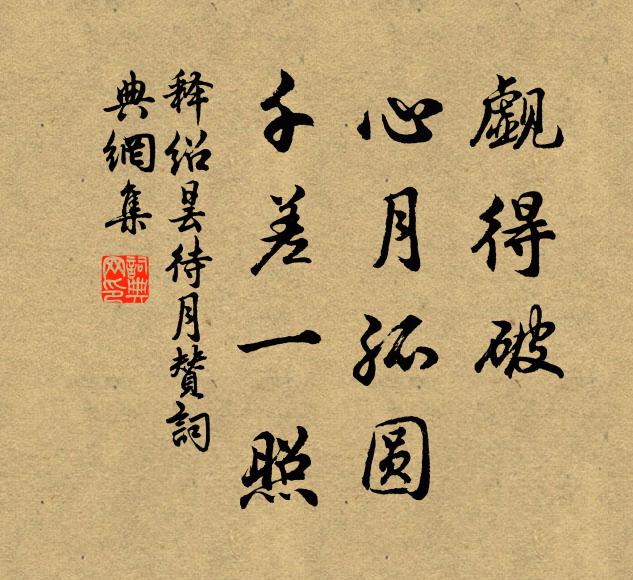 觑得破
心月孤圆
千差一照
释绍昙待月赞詞
典網集
詞典
网印